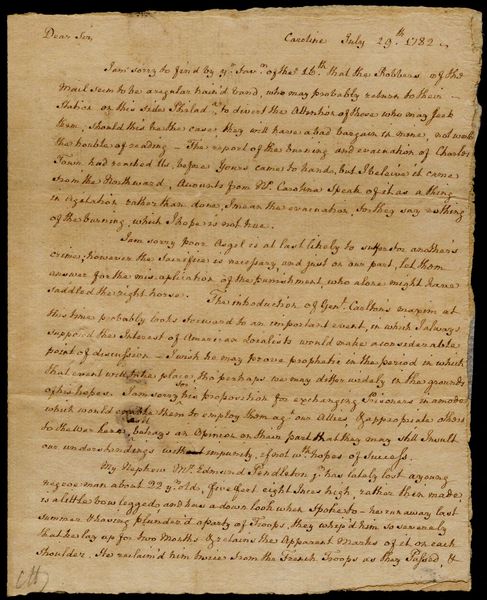 Dear Sir,
Caroline July 29th. 1782
I am sorry to find by yr. favr. of the 16th. that the Robbers of the
Mail seem to be a regular train'd band, who may probably return to their
Station on this side Philada., to divert the Attention of those who may seek
them, should this be the case, they will have a bad bargain in mine, not worth
the trouble of reading — The report of the burning and evacuation of Charles
Town had reached Us, before Yours came to hand, but I beleive it came
from the Northward, Accounts from So. Carolina speak of it as a thing
in Agitation rather than done, I mean the evacuation, for they say nothing
of the burning, which I hope is not true.
I am sorry poor Asgel is at last likely to suffer for another's
crime, however the Sacrifice is necessary, and just on our part, let them
answer for the misaplication of the punishment, who alone might have
saddled the right horse. The introduction of Genl. Carlton's maxim at
this time probably looks forward to an important event, in which I always
supposed the Interest of American Loialists would make a considerable
point of discussion — I wish he may prove prophetic in the period in which
that event will take place, tho' perhaps we may differ widely in the grounds
of his hopes. I am sorry his proposition for exchanging Prisoners in a mode
which would enable them to employ them agt. our Allies, & appropriate others
to the war here, betrays an Opinion on their part that they may still Insult
our understandings with impunity, if not wth. hopes of Success.
My Nephew Mr. Edmund Pendleton jr. has lately lost a young
negroe man about 22 yrs. old, five feet eight Inches high, rather thin made,
is a little bow legged, and has a down look when spoke to — he run away last
summer & having plunder'd a party of Troops, they whip'd him so severely
that he lay up for two Months & retains the Apparent Marks of it on each
shoulder. He reclaim'd him twice from the French Troops as they Passed, &